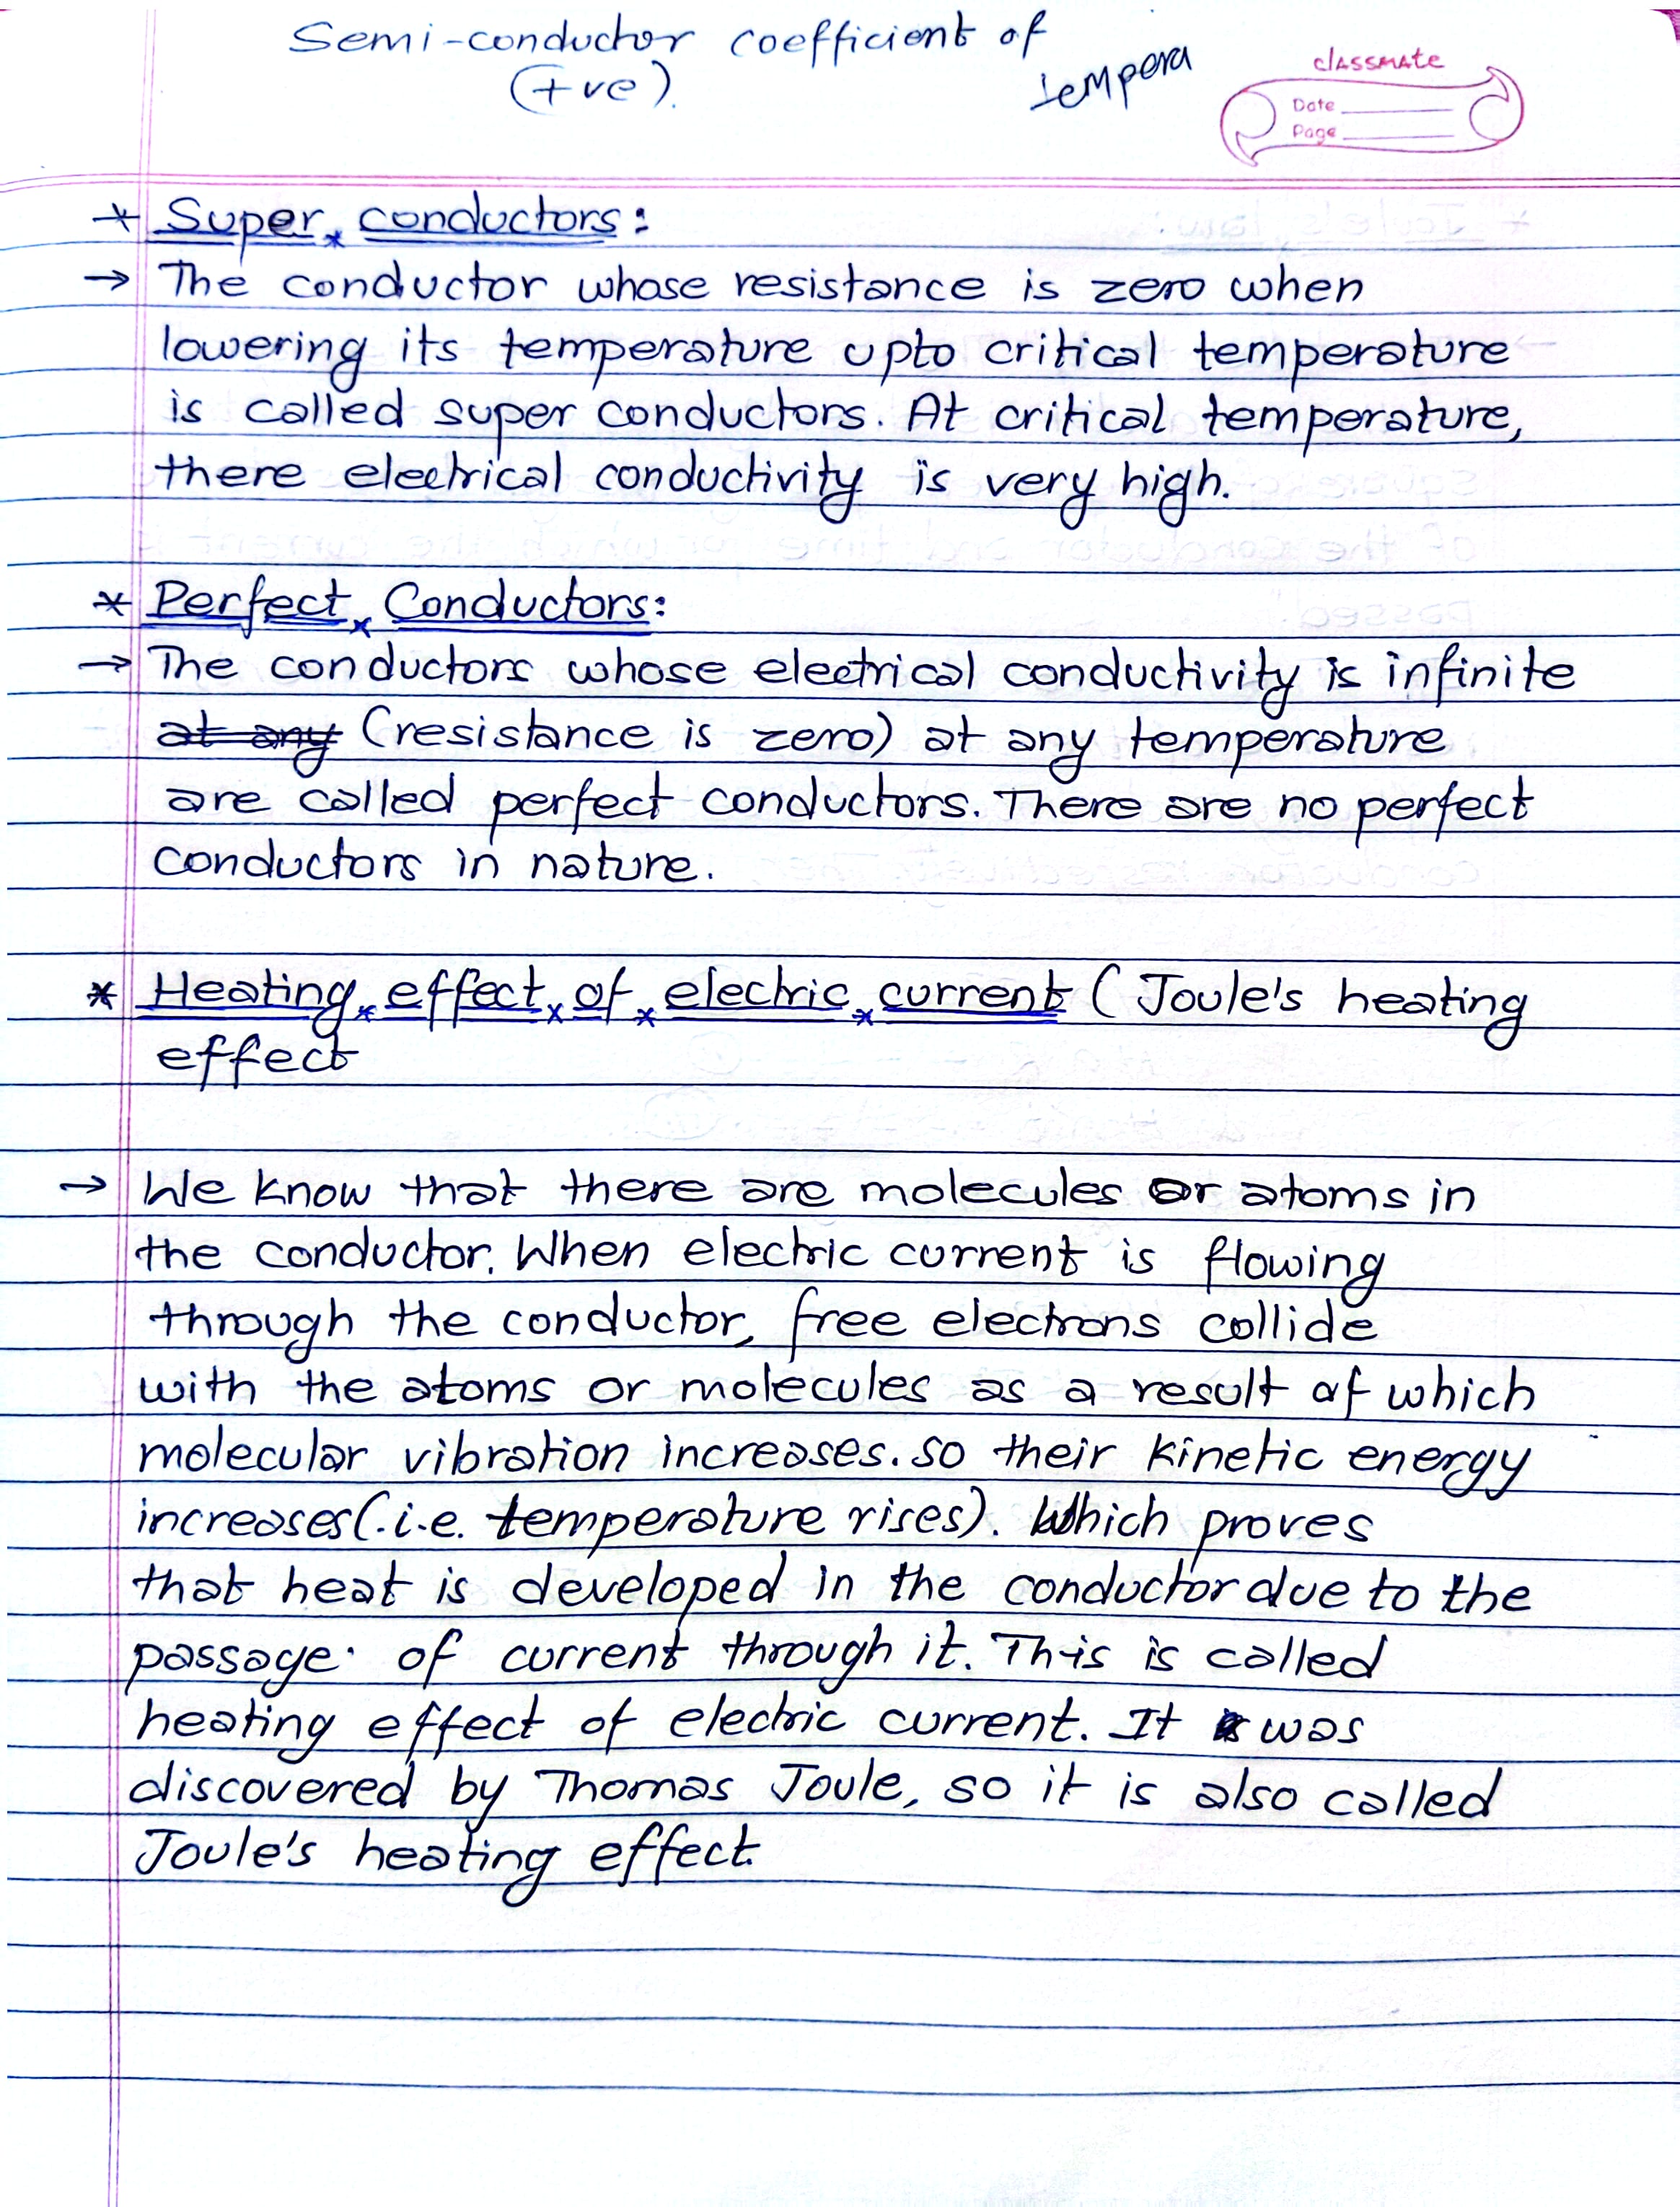 Semi-conductor coefficient of
tempera
(+ve).
classmate
Date
Page
* Super conductors:
→ The conductor whose resistance is zero when
lowering its temperature upto critical temperature
is called super conductors. At critical temperature,
there electrical conductivity is very high.
* Perfect Conductors:
→ The conductors whose electrical conductivity is infinite
at any (resistance is zero) at any temperature
are called perfect conductors. There are no perfect
conductors in nature.
* Heating effect of electric current (Joule's heating
effect
→ We know that there are molecules or atoms in
the conductor. When electric current is flowing
through the conductor, free electrons collide
with the atoms or molecules as a result of which
molecular vibration increases. so their kinetic energy
increases (.i.e. temperature rises). Which proves
that heat is developed in the conductor due to the
passage of current through it. This is called
heating effect of electric current. It was
discovered by Thomas Joule, so it is also called
Joule's heating effect.